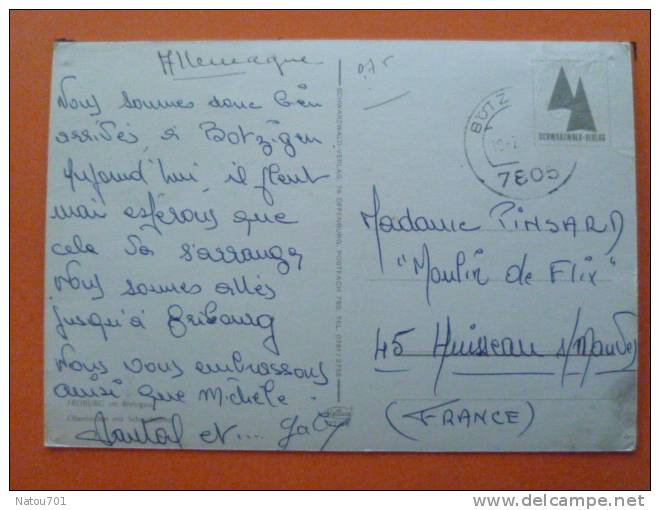 Allemagne
0,75
Nous sommes donc bien
arrivés à Botzigen
aujourd'hui, il pleut
mai espérons que
cela va s'arranger
Nous sommes allés
jusqu'à Fribourg
Nous vous embrassons
ainsi que Michèle.
FREIBURG im Breisgau
Chantal et....
SCHWARZWALD-VERLAG, 76 OFFENBURG, POSTFACH 780, TEL. 0781/
BÖTZ
7805
SCHWARZWALD-VERLAG
Madame PINSARD
"Moulin de Flix"
45 Huisseau s/Mauves
(FRANCE)
Natou701
delcampe.net